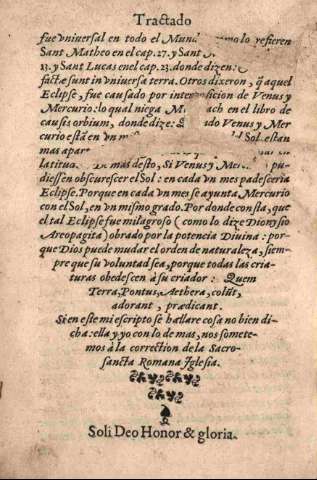 Tractado
fue vniuersal en todo el lo refieren
Sant Matheo en el cap. 27. y Sant
13. y Sant Lucas enel cap. 23. donde dizen:
factæ sunt in vniuersa terra. Otros dixeron, q̃ aquel
Eclipse, fue causado por de Venus y
Mercurio: lo qual niega en el libro de
causis orbium, donde dize: Venus y Mer
curio està en vn Sol. estan
mas
latitud. mas desto, Si Venus y pu-
diessen obscurescer el Sol: en cada vn mes padesceria
Eclipse. Porque en cada vn mes se ayunta Mercurio
con el Sol, en vn mismo grado. Por donde consta, que
el tal Eclipse fue milagroso (como lo dize Dionysio
Areopagita) obrado por la potencia Diuina: por-
que Dios puede mudar el orden de naturaleza, siem-
pre que su voluntad sea, porque todas las cria-
turas obedescen à su criador: Quem
Terra, Pontus, Aethera, colũt,
adorant, prædicant.
Si en este mi escripto se hallare cosa no bien di-
cha: ella y yo con lo de mas, nos somete-
mos à la correction de la Sacro-
sancta Romana Iglesia.
Soli Deo Honor & gloria.